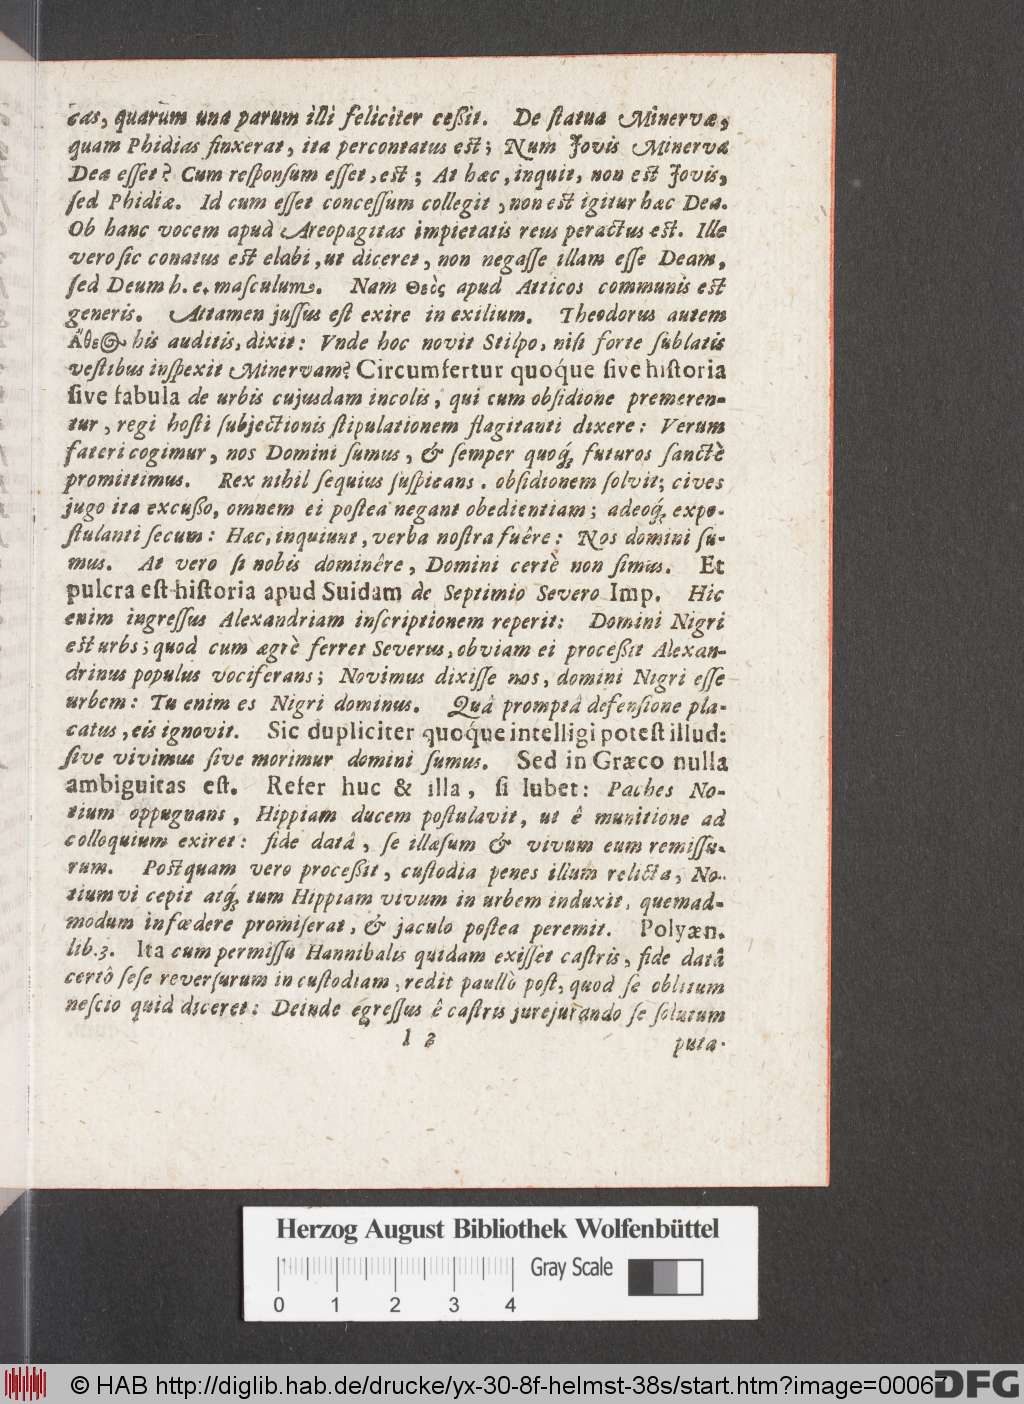 cas, quarum una parum illi feliciter ceßit. De ſtatua Minervæ,
quam Phidias finxerat, ita percontatus eſt; Num Jovis Minerva
Dea eſſet? Cum reſponſum eſſet, eſt; At hæc, inquit, non eſt Jovis,
ſed Phidiæ. Id cum eſſet conceſſum collegit, non eſt igitur hæc Dea.
Ob hanc vocem apud Areopagitas impietatis reus peractus eſt. Ille
vero ſic conatus eſt elabi, ut diceret, non negaſſe illam eſſe Deam,
ſed Deum h. e. maſculum. Nam Θεὸς apud Atticos communis eſt
generis. Attamen juſſus eſt exire in exilium. Theodorus autem
Ἄθεος his auditis, dixit: Vnde hoc novit Stilpo, niſi forte ſublatis
veſtibus inſpexit Minervam? Circumfertur quoque ſive hiſtoria
ſive fabula de urbis cujusdam incolis, qui cum obſidione premeren-
tur, regi hoſti ſubjectionis ſtipulationem flagitanti dixere: Verum
fateri cogimur, nos Domini ſumus, & ſemper quoq; futuros ſanctè
promittimus. Rex nihil ſequius ſuſpicans. obſidionem ſolvit; cives
jugo ita excuſſo, omnem ei poſtea negant obedientiam; adeoq; expo-
ſtulanti ſecum: Hæc, inquiunt, verba noſtra fuêre: Nos domini ſu-
mus. At vero ſi nobis dominêre, Domini certè non ſimus. Et
pulcra eſt hiſtoria apud Suidam de Septimio Severo Imp. Hic
enim ingreſſus Alexandriam inſcriptionem reperit: Domini Nigri
eſt urbs; quod cum ægrè ferret Severus, obviam ei proceßit Alexan-
drinus populus vociferans; Novimus dixiſſe nos, domini Nigri eſſe
urbem: Tu enim es Nigri dominus. Quâ promptâ defenſione pla-
catus, eis ignovit. Sic dupliciter quoque intelligi poteſt illud:
ſive vivimus ſive morimur domini ſumus. Sed in Græco nulla
ambiguitas eſt. Refer huc & illa, ſi lubet: Paches No-
tium oppugnans, Hippiam ducem poſtulavit, ut ê munitione ad
colloquium exiret: fide datâ, ſe illæſum & vivum eum remiſſu-
rum. Poſtquam vero proceßit, cuſtodia penes illum relicta, No-
tium vi cepit atq; tum Hippiam vivum in urbem induxit, quemad-
modum in fœdere promiſerat, & jaculo poſtea peremit. Polyæn.
lib.3. Ita cum permiſſu Hannibalis quidam exiſſet caſtris, fide datâ
certô ſeſe reverſurum in cuſtodiam, redit paullò poſt, quod ſe oblitum
neſcio quid diceret: Deinde egreſſus ê caſtris jurejurando ſe ſolutum
l 3 puta-
Herzog August Bibliothek Wolfenbüttel
Gray Scale
0 1 2 3 4
© HAB http://diglib.hab.de/drucke/yx-30-8f-helmst-38s/start.htm?image=00067
DFG